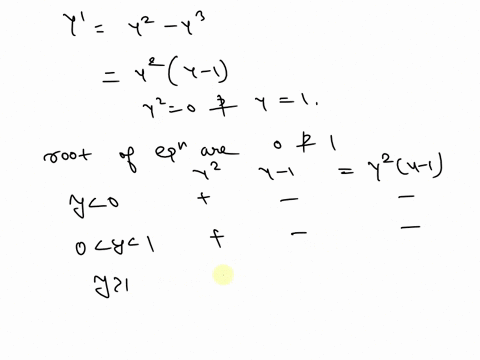 y' = y² - y³
= y²(y-1)
y²=0 & y=1.
root of eqⁿ are 0 & 1
y² y-1 = y²(y-1)
y<0 + - -
0<y<1 + - -
y>1